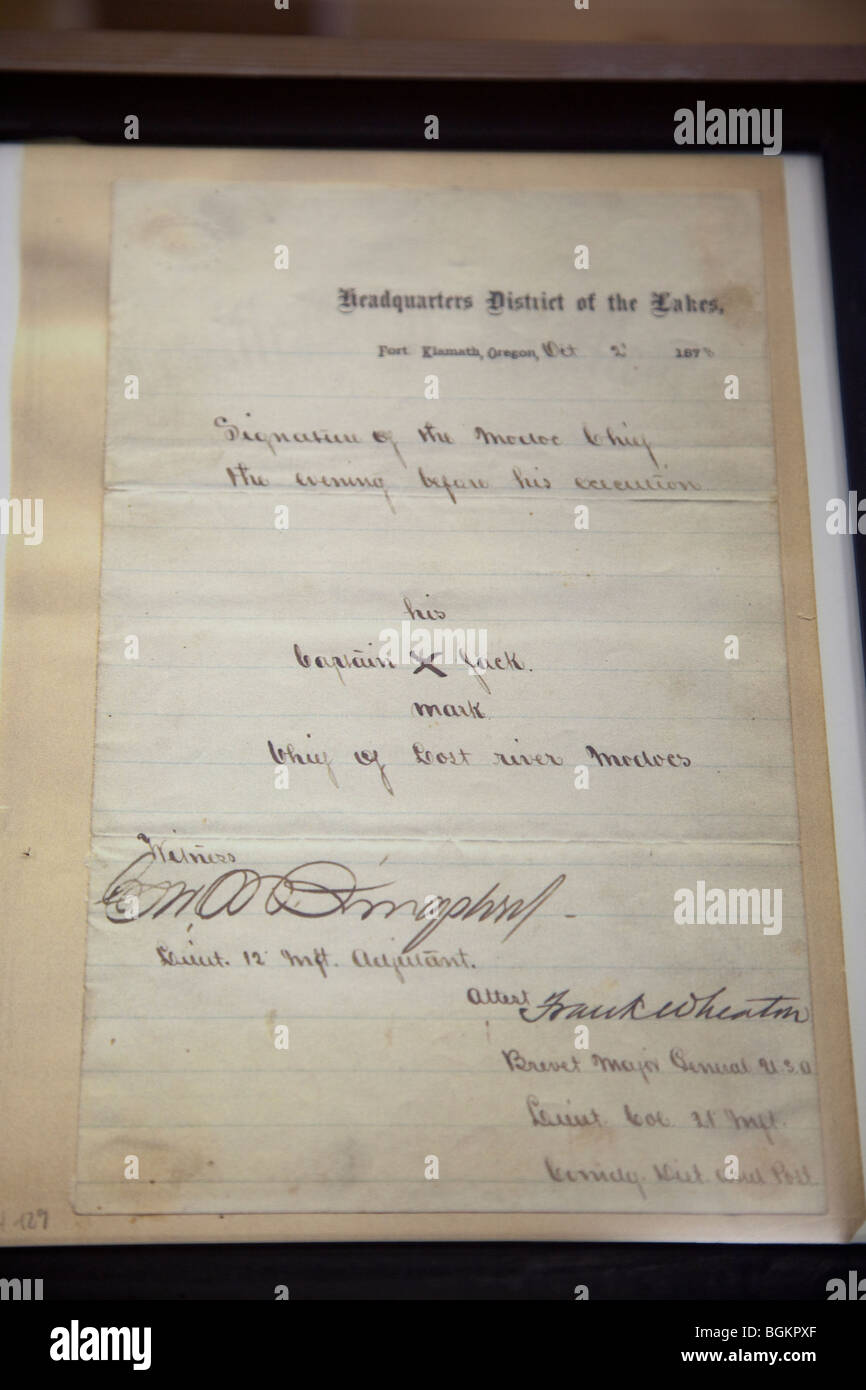 Headquarters District of the Lakes,
Fort Klamath, Oregon, Oct 2d 1873
Signature of the Modoc Chief
the evening before his execution
his
Captain X Jack.
mark
Chief of Lost river Modocs
Witness
Lieut. 12 Inft. Adjutant.
Attest Frank Wheaton
Brevet Major General U.S.A
Lieut. Col. 21 Inft.
Comdg. Dist. and Post
129
alamy
BGKPXF
www.alamy.com